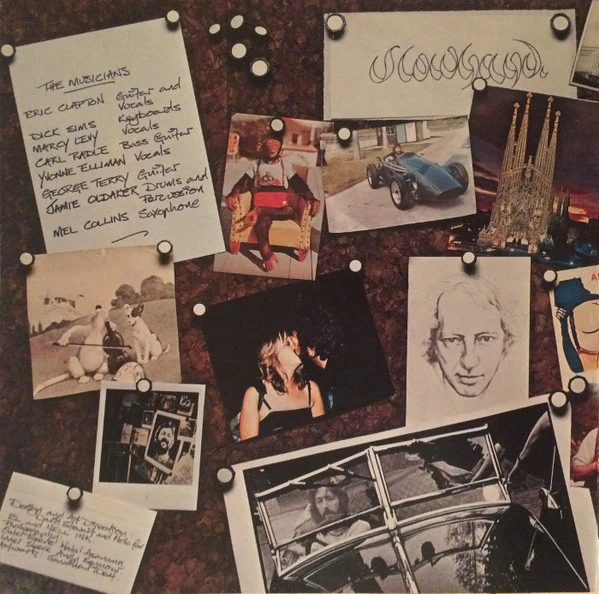 THE MUSICIANS
ERIC CLAPTON Guitar and
Vocals
DICK SIMS Keyboards
MARCY LEVY Vocals
CARL RADLE Bass Guitar
YVONNE ELLIMAN Vocals
GEORGE TERRY Guitar
JAMIE OLDAKER Drums and
Percussion
MEL COLLINS Saxophone
Slowhand
Design and Art Direction
and NELL INK
Andy Seymour